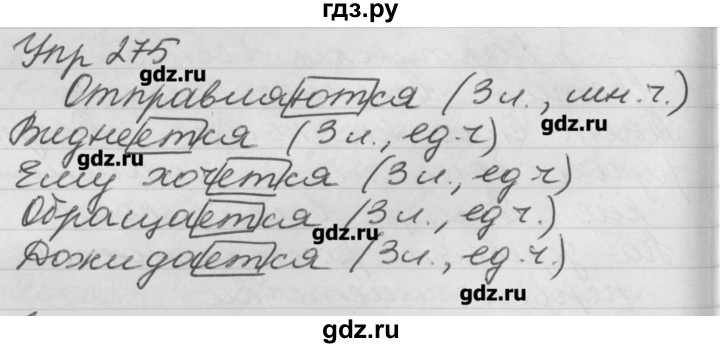 гдз.ру
Упр 275
gdz.ru
Отправляются (3л., мн.ч.)
gdz.ru
Виднеется (3л., ед.ч)
gdz.ru
Ему хочется (3л., ед.ч)
Обращается (3л., ед.ч.)
gdz.ru
Дожидается (3л., ед.ч.)
gdz.ru
gdz.ru